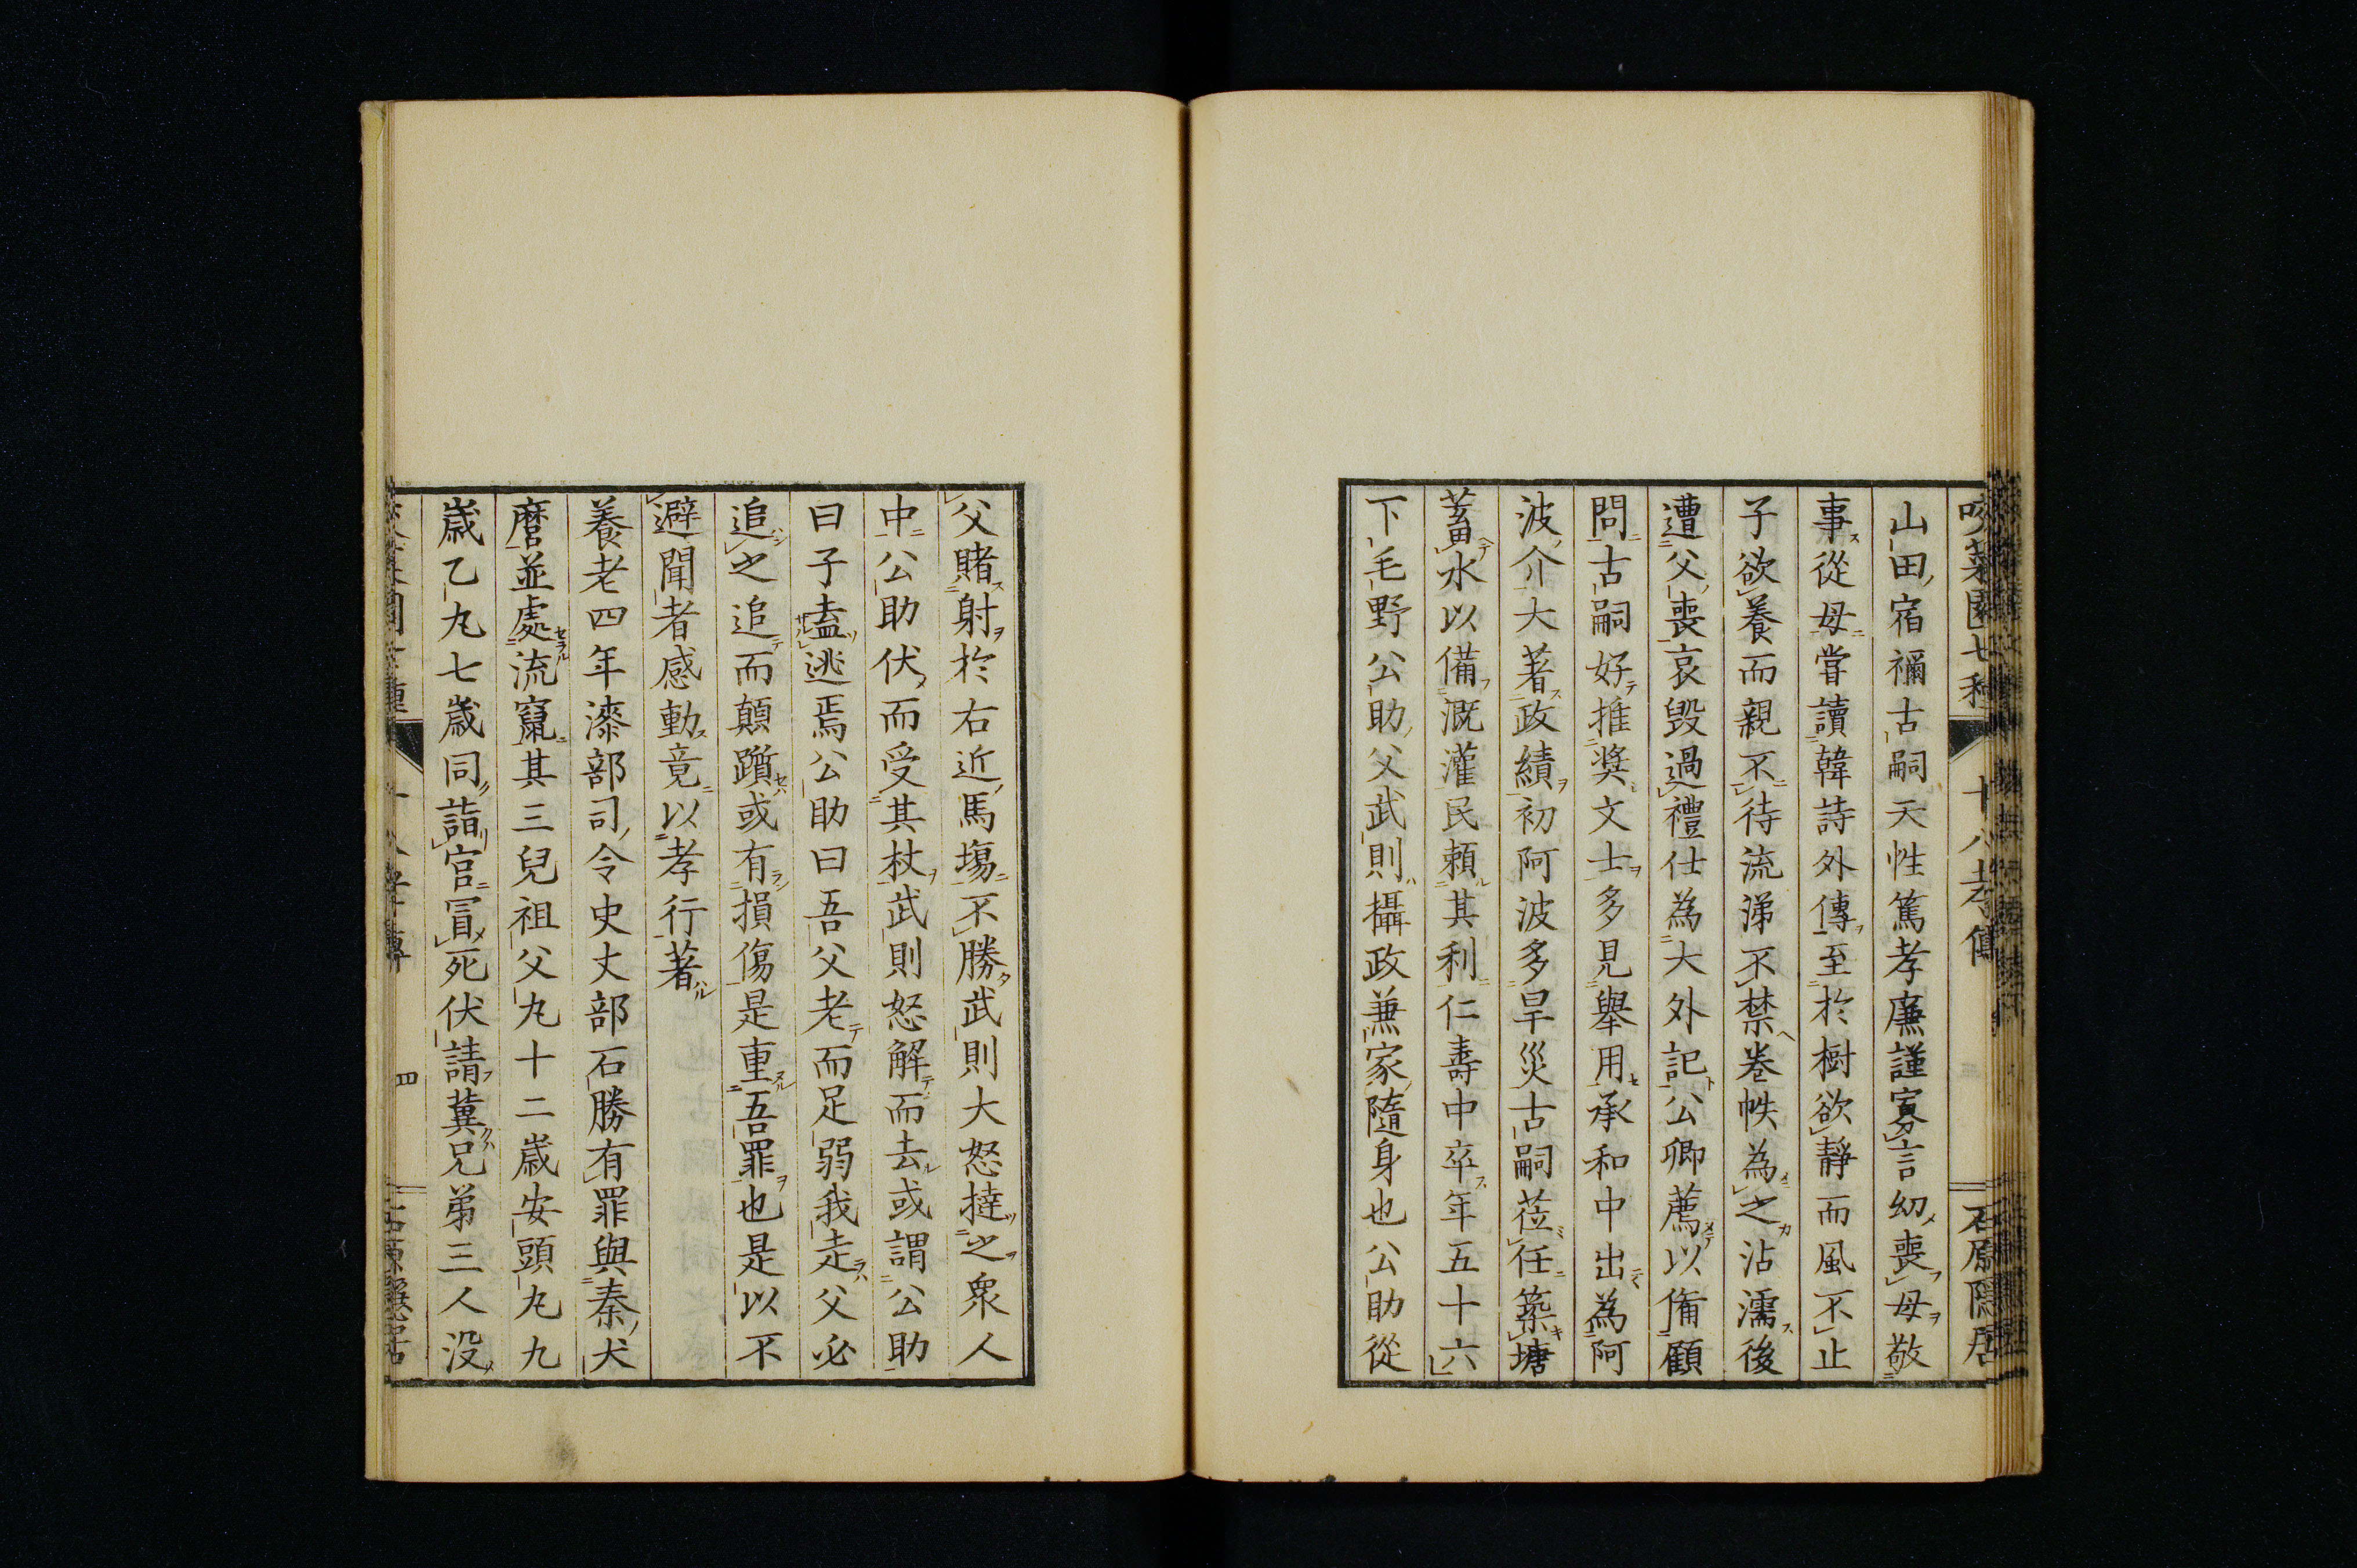 山田宿禰古嗣天性篤孝廉謹寡言幼喪母敬
事從母甞讀韓詩外傳至於樹欲靜而風不止
子欲養而親不待流涕不禁卷帙為之沾濡後
遭父喪哀毀過禮仕為大外記公卿薦以備顧
問古嗣好推奨文士多見舉用承和中出為阿
波介大著政績初阿波多旱災古嗣莅任築塘
蓄水以備漑灌民頼其利仁壽中卒年五十六
下毛野公助父武則攝政兼家隨身也公助從
父賭射於右近馬塲不勝武則大怒撻之衆人
中公助伏而受其杖武則怒解而去或謂公助
曰子盍逃焉公助曰吾父老而足弱我走父必
追之追而顛躓或有損傷是重吾罪也是以不
避聞者感動竟以孝行著
養老四年漆部司令史丈部石勝有罪與秦犬
麿並處流竄其三兒祖父丸十二歳安頭丸九
歳乙丸七歳同詣官冒死伏請冀兄弟三人没
十八孝傳
石原隱居
四